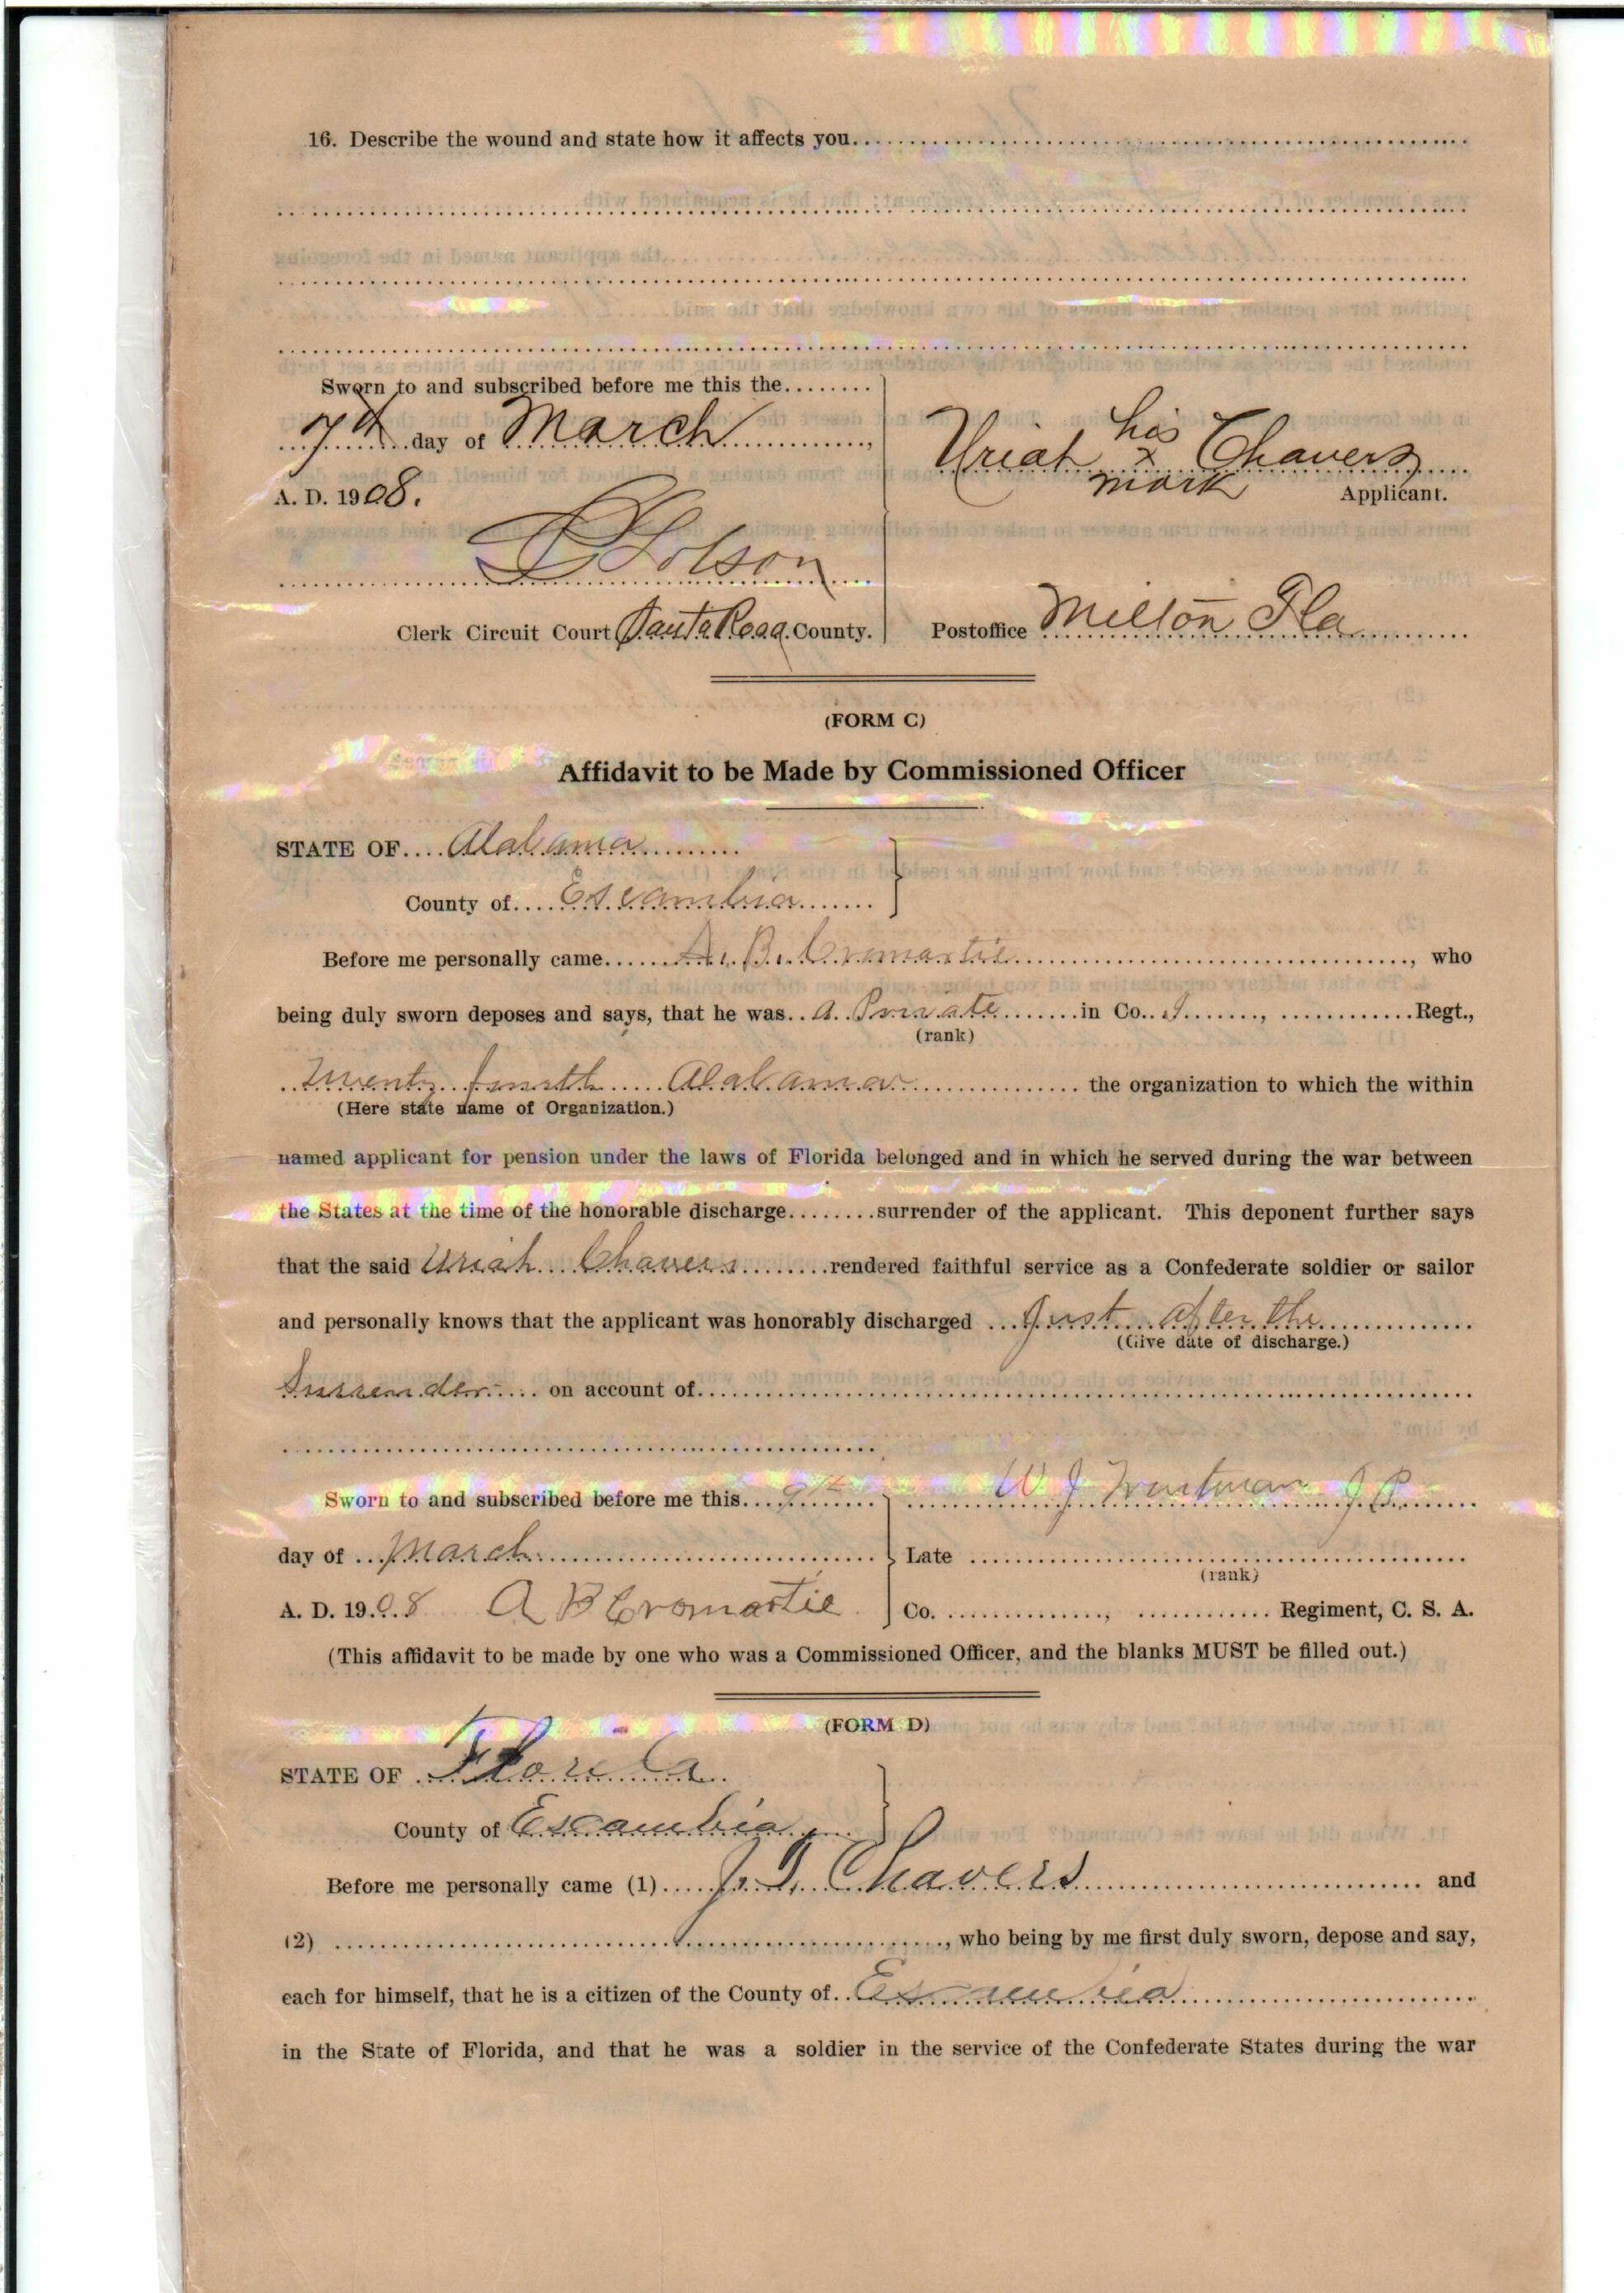 16. Describe the wound and state how it affects you
Sworn to and subscribed before me this the
7th day of March
A. D. 1908.
Uriah his x mark Chavers
Applicant.
Clerk Circuit Court Santa Rosa County.
Postoffice Milton Fla
(FORM C)
Affidavit to be Made by Commissioned Officer
STATE OF Alabama
County of Escambia
Before me personally came A. B. Cromartie, who
being duly sworn deposes and says, that he was a Private in Co. I, Regt.,
(rank)
Twenty fourth Alabama the organization to which the within
(Here state name of Organization.)
named applicant for pension under the laws of Florida belonged and in which he served during the war between
the States at the time of the honorable discharge........surrender of the applicant. This deponent further says
that the said Uriah Chavers rendered faithful service as a Confederate soldier or sailor
and personally knows that the applicant was honorably discharged Just after the
(Give date of discharge.)
Surrender on account of
Sworn to and subscribed before me this 9th
W J Trutman J P
day of March
Late
(rank)
A. D. 1908 A B Cromartie
Co. , Regiment, C. S. A.
(This affidavit to be made by one who was a Commissioned Officer, and the blanks MUST be filled out.)
(FORM D)
STATE OF Florida
County of Escambia
Before me personally came (1) J. T. Chavers and
(2) , who being by me first duly sworn, depose and say,
each for himself, that he is a citizen of the County of Escambia
in the State of Florida, and that he was a soldier in the service of the Confederate States during the war